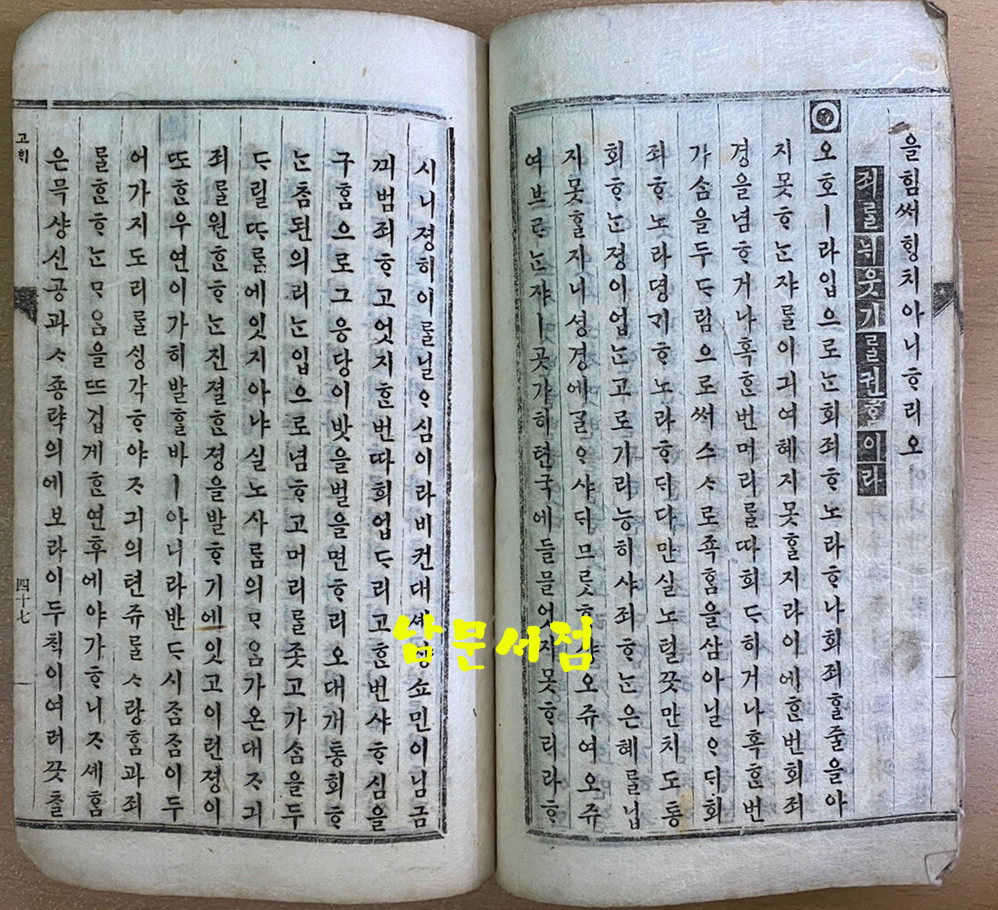 을힘써힝치아니ᄒᆞ리오
죄ᄅᆞᆯ뉘웃기ᄅᆞᆯ권ᄒᆞᆷ이라
오호ㅣ라입으로ᄂᆞᆫ회죄ᄒᆞ노라ᄒᆞ나회죄ᄒᆞᆯ줄을아
지못ᄒᆞᄂᆞᆫ쟈ᄅᆞᆯ이긔여혜지못ᄒᆞᆯ지라이에ᄒᆞᆫ번회죄
경을념ᄒᆞ거나혹ᄒᆞᆫ번머리ᄅᆞᆯ따희ᄃᆞ히거나혹ᄒᆞᆫ번
가ᄉᆞᆷ을두ᄃᆞ림으로써스ᄉᆞ로족ᄒᆞᆷ을삼아닐ᄋᆞᄃᆡ회
죄ᄒᆞ노라뎡ᄀᆡᄒᆞ노라ᄒᆞᄃᆡ다만실노털끗만치도통
회ᄒᆞᄂᆞᆫ졍이업ᄂᆞᆫ고로기리능히샤죄ᄒᆞᄂᆞᆫ은혜ᄅᆞᆯ닙
지못ᄒᆞᆯ지니셩경에ᄀᆞᆯᄋᆞ샤ᄃᆡ므릇 오쥬여오쥬
여브ᄅᆞᄂᆞᆫ쟈ㅣ곳가히텬국에들믈어 지못ᄒᆞ리라ᄒᆞ
시니졍히이ᄅᆞᆯ닐ᄋᆞ심이라비컨대셰 쇼민이님금
끠범죄ᄒᆞ고엇지ᄒᆞᆫ번따희업ᄃᆞ리고ᄒᆞᆫ번샤ᄒᆞ심을
구ᄒᆞᆷ으로그응당이밧을벌을면ᄒᆞ리오대개통회ᄒᆞ
ᄂᆞᆫ참된의리ᄂᆞᆫ입으로념ᄒᆞ고머리ᄅᆞᆯ좃고가ᄉᆞᆷ을두
ᄃᆞ릴ᄯᆞᄅᆞᆷ에잇지아냐실노사ᄅᆞᆷ의ᄆᆞᄋᆞᆷ가온대ᄌᆞ긔
죄ᄅᆞᆯ원ᄒᆞᆫᄒᆞᄂᆞᆫ진졀ᄒᆞᆫ졍을발ᄒᆞ기에잇고이런졍이
또ᄒᆞᆫ우연이가히발ᄒᆞᆯ바ㅣ아니라반ᄃᆞ시ᄌᆞᆷᄌᆞᆷ이두
어가지도리ᄅᆞᆯᄉᆡᆼ각ᄒᆞ야ᄌᆞ긔의텬쥬ᄅᆞᆯᄉᆞ랑ᄒᆞᆷ과죄
ᄅᆞᆯᄒᆞᆫᄒᆞᄂᆞᆫᄆᆞᄋᆞᆷ을뜨겁게ᄒᆞᆫ연후에야가ᄒᆞ니ᄌᆞ셰ᄒᆞᆷ
은묵샹신공과ᄉᆞ죵략의에보라이두ᄎᆡᆨ이여러끗ᄎᆞᆯ
고ᄒᆡ
四十七
남문서점